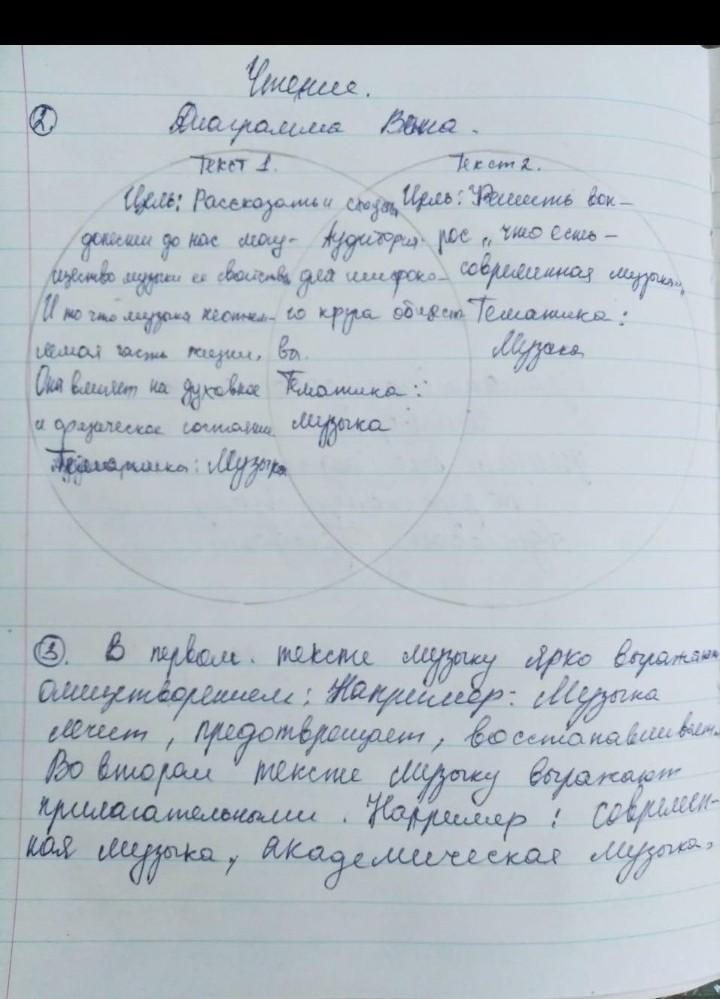 Чтение.
2. Диаграмма Вена.
Текст 1. Текст 2.
Цель: Рассказать и Цель: Решить воп-
донести до нас могу- Аудитория рос „что есть -
щество музыки ее свойства для широко- современная музыка"
И то что музыка неотъем- го круга общест Тематика:
лемая часть жизни, вы. Музыка
Она влияет на духовное Тематика:
и физическое состояние Музыка
Музыка
3. В первом. тексте музыку ярко выражают
олицетворением: Например: Музыка
лечит, предотвращает, восстанавливает.
Во втором тексте музыку выражают
прилагательными. Например: современ-
ная музыка, академическая музыка,